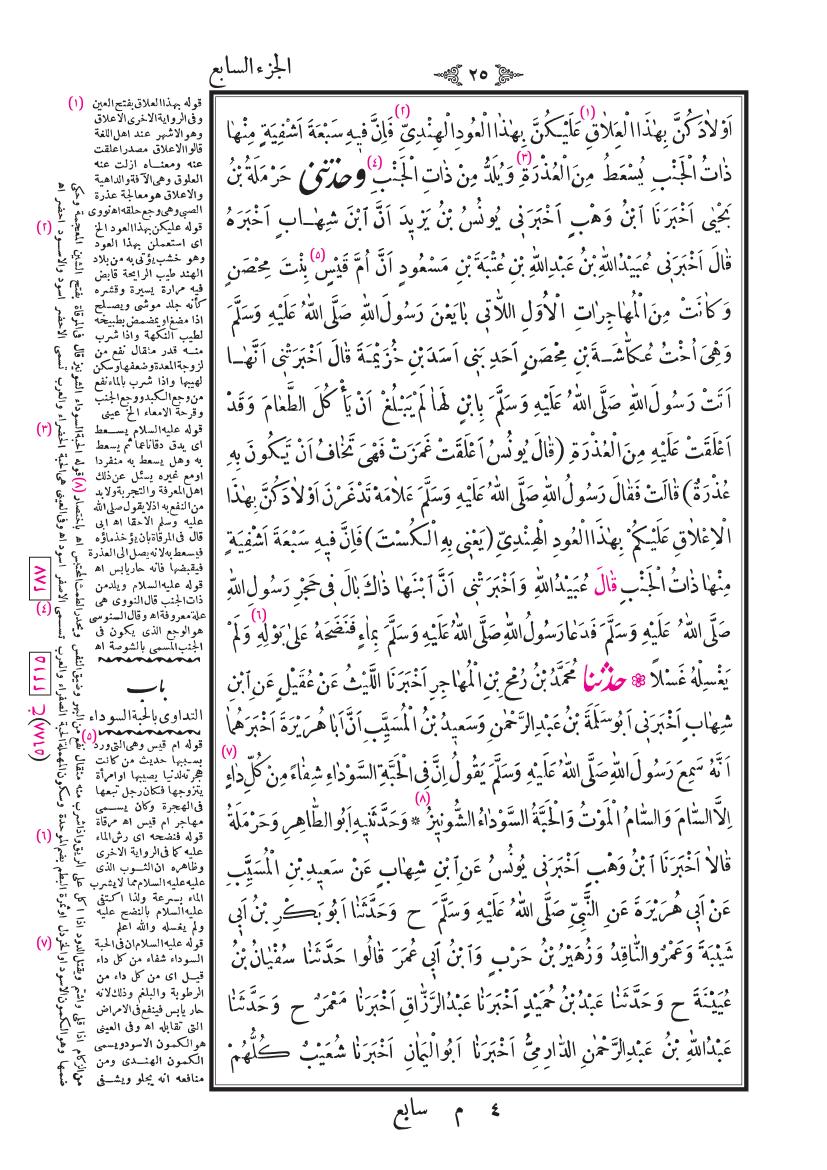 الجزء السابع
٢٥
اَوْلَادَكُنَّ بِهٰذَا الْعِلَاقِ (١) عَلَيْكُنَّ بِهٰذَا الْعُودِ الْهِنْدِيِّ (٢) فَاِنَّ فِيهِ سَبْعَةَ اَشْفِيَةٍ مِنْهَا
ذَاتُ الْجَنْبِ يُسْعَطُ مِنَ الْعُذْرَةِ (٣) وَيُلَدُّ مِنْ ذَاتِ الْجَنْبِ (٤) وحدثنى حَرْمَلَةُ بْنُ
يَحْيٰى اَخْبَرَنَا ابْنُ وَهْبٍ اَخْبَرَنِى يُونُسُ بْنُ يَزِيدَ اَنَّ ابْنَ شِهَابٍ اَخْبَرَهُ
قَالَ اَخْبَرَنِى عُبَيْدُ اللّٰهِ بْنُ عَبْدِ اللّٰهِ بْنِ عُتْبَةَ بْنِ مَسْعُودٍ اَنَّ اُمَّ قَيْسٍ (٥) بِنْتَ مِحْصَنٍ
وَكَانَتْ مِنَ الْمُهَاجِرَاتِ الْاُوَلِ اللَّاتِى بَايَعْنَ رَسُولَ اللّٰهِ صَلَّى اللّٰهُ عَلَيْهِ وَسَلَّمَ
وَهِىَ اُخْتُ عُكَّاشَةَ بْنِ مِحْصَنٍ اَحَدِ بَنِى اَسَدِ بْنِ خُزَيْمَةَ قَالَ اَخْبَرَتْنِى اَنَّهَا
اَتَتْ رَسُولَ اللّٰهِ صَلَّى اللّٰهُ عَلَيْهِ وَسَلَّمَ بِابْنٍ لَهَا لَمْ يَبْلُغْ اَنْ يَأْكُلَ الطَّعَامَ وَقَدْ
اَعْلَقَتْ عَلَيْهِ مِنَ الْعُذْرَةِ (قَالَ يُونُسُ اَعْلَقَتْ غَمَزَتْ فَهِىَ تَخَافُ اَنْ يَكُونَ بِهِ
عُذْرَةٌ) قَالَتْ فَقَالَ رَسُولُ اللّٰهِ صَلَّى اللّٰهُ عَلَيْهِ وَسَلَّمَ عَلَامَهْ تَدْغَرْنَ اَوْلَادَكُنَّ بِهٰذَا
الْاِعْلَاقِ عَلَيْكُمْ بِهٰذَا الْعُودِ الْهِنْدِيِّ (يَعْنِى بِهِ الْكُسْتَ) فَاِنَّ فِيهِ سَبْعَةَ اَشْفِيَةٍ
مِنْهَا ذَاتُ الْجَنْبِ قَالَ عُبَيْدُ اللّٰهِ وَاَخْبَرَتْنِى اَنَّ ابْنَهَا ذَاكَ بَالَ فِى حَجْرِ رَسُولِ اللّٰهِ
صَلَّى اللّٰهُ عَلَيْهِ وَسَلَّمَ فَدَعَا رَسُولُ اللّٰهِ صَلَّى اللّٰهُ عَلَيْهِ وَسَلَّمَ بِمَاءٍ فَنَضَحَهُ عَلٰى بَوْلِهِ (٦) وَلَمْ
يَغْسِلْهُ غَسْلًا ❁ حدثنا مُحَمَّدُ بْنُ رُمْحِ بْنِ الْمُهَاجِرِ اَخْبَرَنَا اللَّيْثُ عَنْ عُقَيْلٍ عَنِ ابْنِ
شِهَابٍ اَخْبَرَنِى اَبُو سَلَمَةَ بْنُ عَبْدِ الرَّحْمٰنِ وَسَعِيدُ بْنُ الْمُسَيَّبِ اَنَّ اَبَا هُرَيْرَةَ اَخْبَرَهُمَا
اَنَّهُ سَمِعَ رَسُولَ اللّٰهِ صَلَّى اللّٰهُ عَلَيْهِ وَسَلَّمَ يَقُولُ اِنَّ فِى الْحَبَّةِ السَّوْدَاءِ شِفَاءً مِنْ كُلِّ دَاءٍ (٧)
اِلَّا السَّامَ وَالسَّامُ الْمَوْتُ وَالْحَبَّةُ السَّوْدَاءُ الشُّونِيزُ (٨) * وَحَدَّثَنِيهِ اَبُو الطَّاهِرِ وَحَرْمَلَةُ
قَالَا اَخْبَرَنَا ابْنُ وَهْبٍ اَخْبَرَنِى يُونُسُ عَنِ ابْنِ شِهَابٍ عَنْ سَعِيدِ بْنِ الْمُسَيَّبِ
عَنْ اَبِى هُرَيْرَةَ عَنِ النَّبِيِّ صَلَّى اللّٰهُ عَلَيْهِ وَسَلَّمَ ح وَحَدَّثَنَا اَبُو بَكْرِ بْنُ اَبِى
شَيْبَةَ وَعَمْرٌو النَّاقِدُ وَزُهَيْرُ بْنُ حَرْبٍ وَابْنُ اَبِى عُمَرَ قَالُوا حَدَّثَنَا سُفْيَانُ بْنُ
عُيَيْنَةَ ح وَحَدَّثَنَا عَبْدُ بْنُ حُمَيْدٍ اَخْبَرَنَا عَبْدُ الرَّزَّاقِ اَخْبَرَنَا مَعْمَرٌ ح وَحَدَّثَنَا
عَبْدُ اللّٰهِ بْنُ عَبْدِ الرَّحْمٰنِ الدَّارِمِيُّ اَخْبَرَنَا اَبُو الْيَمَانِ اَخْبَرَنَا شُعَيْبٌ كُلُّهُمْ
(١) قوله بهذا العلاق بفتح العين
وفى الرواية الاخرى الاعلاق
وهو الاشهر عند اهل اللغة
قالوا الاعلاق مصدر اعلقت
عنه ومعناه ازلت عنه
العلوق وهى الآفة والداهية
والاعلاق هو معالجة عذرة
الصبى وهى وجع حلقه اه نووى
(٢) قوله عليكن بهذا العود الخ
اى استعملن بهذا العود
وهو خشب يؤتى به من بلاد
الهند طيب الرايحة قابض
فيه مرارة يسيرة وقشره
كأنه جلد موشى ويصلح
اذا مضغ او يمضمض بطبيخه
لطيب النكهة واذا شرب
منه قدر مثقال نفع من
لزوجة المعدة وضعفها وسكن
لهيبها واذا شرب بالماء نفع
من وجع الكبد ووجع الجنب
وقرحة الامعاء الخ عينى
(٣) قوله عليه السلام يسعط
اى يدق دقا ناعما ثم يسعط
به وهل يسعط به منفردا
او مع غيره يسئل عن ذلك
اهل المعرفة والتجربة ولا بد
من النفع به اذ لا يقول صلى الله
عليه وسلم الا حقا اه ابى
قال فى المرقاة بان يؤخذ ماؤه
فيسعط به لانه يصل الى العذرة
فيقبضها فانه حار يابس اه
(٤) قوله عليه السلام ويلد من
ذات الجنب قال النووى هى
علة معروفة اه وقال السنوسى
هو الوجع الذى يكون فى
الجنب المسمى بالشوصة اه
باب
التداوى بالحبة السوداء
(٥) قوله ام قيس وهى التى ورد
بسببها حديث من كانت
هجرته لدنيا يصيبها او امرأة
يتزوجها فكان رجل تبعها
فى الهجرة وكان يسمى
مهاجر ام قيس اه مرقاة
(٦) قوله فنضحه اى رش الماء
عليه كما فى الرواية الاخرى
وظاهره ان الثوب الذى
عليه عليه السلام مما لا يشرب
الماء بسرعة ولذا اكتفى
عليه السلام بالنضح عليه
ولم يغسله والله اعلم
(٧) قوله عليه السلام ان فى الحبة
السوداء شفاء من كل داء
قيل اى من كل داء من
الرطوبة والبلغم وذلك لانه
حار يابس فينفع فى الامراض
التى تقابله اه وفى العينى
هو الكمون الاسود ويسمى
الكمون الهندى ومن
منافعه انه يجلو ويشفى
من الزكام اذا قلى واشتم ويقتل الدود اذا اكل على الريق واذا شرب منه مثقال نفع من البهر وضيق النفس ويحدر الطمث المحتبس اه باختصار (٨) قوله الحبة السوداء الشونيز قال فى المرقاة بفتح الشين المعجمة وحكى
ضمها وهو الكمون الاسود او الخردل او ثمرة البطم بضم الموحدة وسكون المهملة الحبة الصفراء والعرب تسمى الاصفر اسود اه وفى العينى هى الحبة الخضراء والعرب تسمى الاخضر اسود والاسود اخضر اه
٤ م سابع